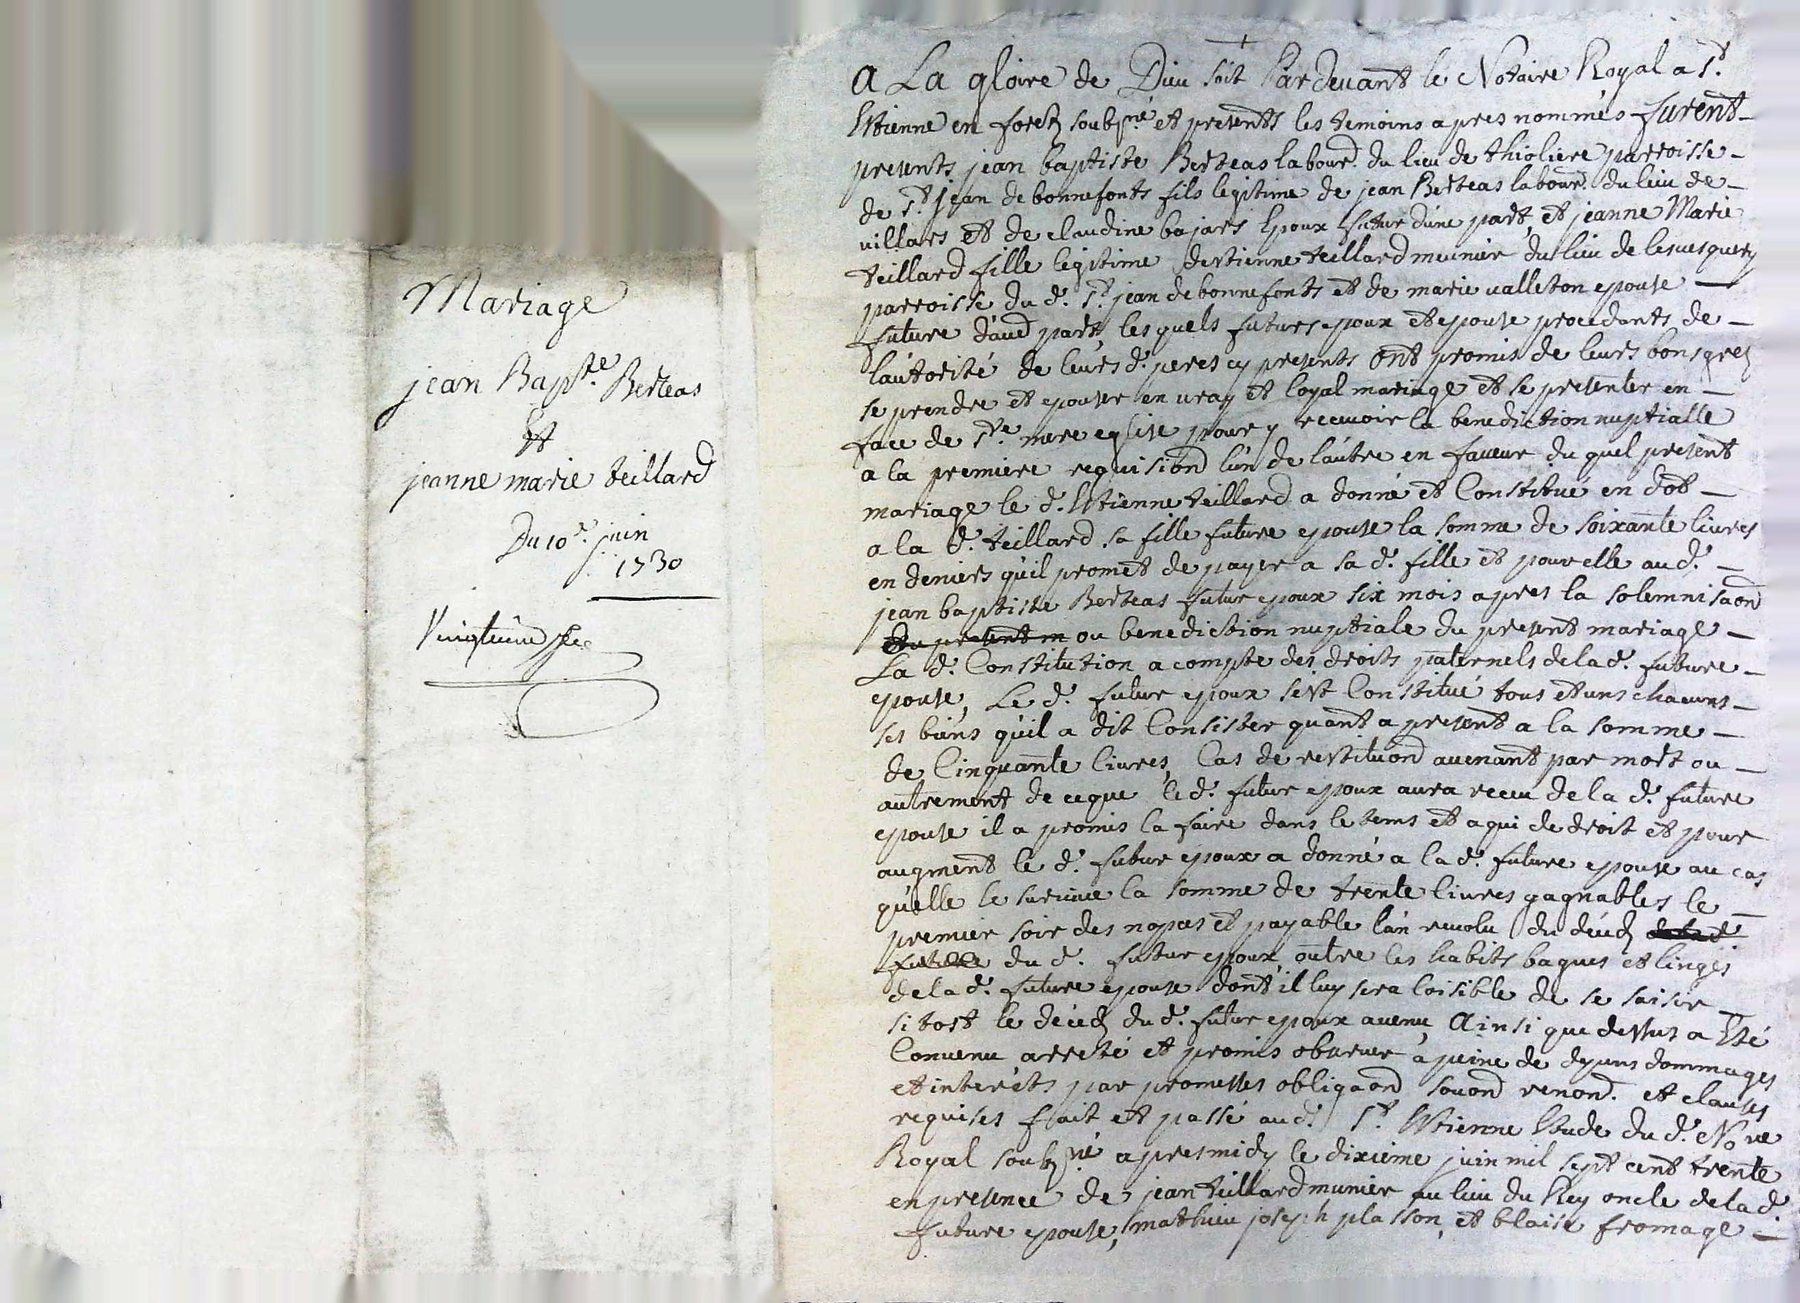 Mariage
jean Bapte. Berteas
Et
jeanne marie teillard
Du 10e. juin
1730
A La gloire de Dieu soit Pardevant le Notaire Royal a St.
Etienne en forez soubsné et presents les temoins apres nommés furent
presents jean baptiste Berteas labourd. du lieu de thioliere parroisse
de St. jean de bonnefonts fils legitime de jean Berteas labourd. du lieu de
villars et de claudine bajars Epoux futur dúne part, et jeanne Marie
teillard fille legitime destienne teillard meunier du lieu de
parroisse du d. St. jean de bonnefonts et de marie valleton epouse
future dáud part, lesquels futurs epoux et epouse procedants de
láutorité de leurs d. peres cy presents ont promis de leurs bons grez
se prendre et epouser en vray et loyal mariage et se presenter en
face de Ste. mere eglise pour y recevoir la benediction nuptialle
a la premiere requisiond lún de láutre en faveur du quel present
mariage le d. Estienne teillard a donné et Constitué en dot
a la d. teillard sa fille future epouse la somme de soixante livres
en deniers qúil promet de payer a sa d. fille et pour elle au d.
jean baptiste Berteas futur epoux six mois apres la solemnisaond
du present m ou benediction nuptiale du present mariage
La d. Constitution a compte des droits paternels de la d. future
epouse, Le d. futur epoux sést Constitué tous et uns chacuns
ses biens qúil a dit Consister quant a present a la somme
de Cinquante livres, Cas de restituond avenant par mort ou
autrement de ceque le d. futur epoux aura receu de la d. future
epouse il a promis la faire dans le tems et a qui de droit et pour
augment le d. futur epoux a donné a la d. future epouse au cas
qúelle le survive la somme de trente livres gagnables le
premier soir des nopces et payable lán revolu du décéds de la d.
future du d. futur epoux outre les habits bagues et linges
de la d. future epouse dont il luy sera loisible de se saisir
sitost le décéds du d. futur epoux avenu, Ainsi que dessus a Eté
Convenu arresté et promis observer a peine de depens dommages
et interéts par promesses obligaond souond renond. et clauses
requises fait et passé aud. St. Etienne Etude du d. Nore
Royal soubsné apresmidy le dixieme juin mil sept cent trente
en presence de jean teillard munier au lieu du Rey oncle de la d.
future epouse, mathieu joseph plasson, et blaise fromage